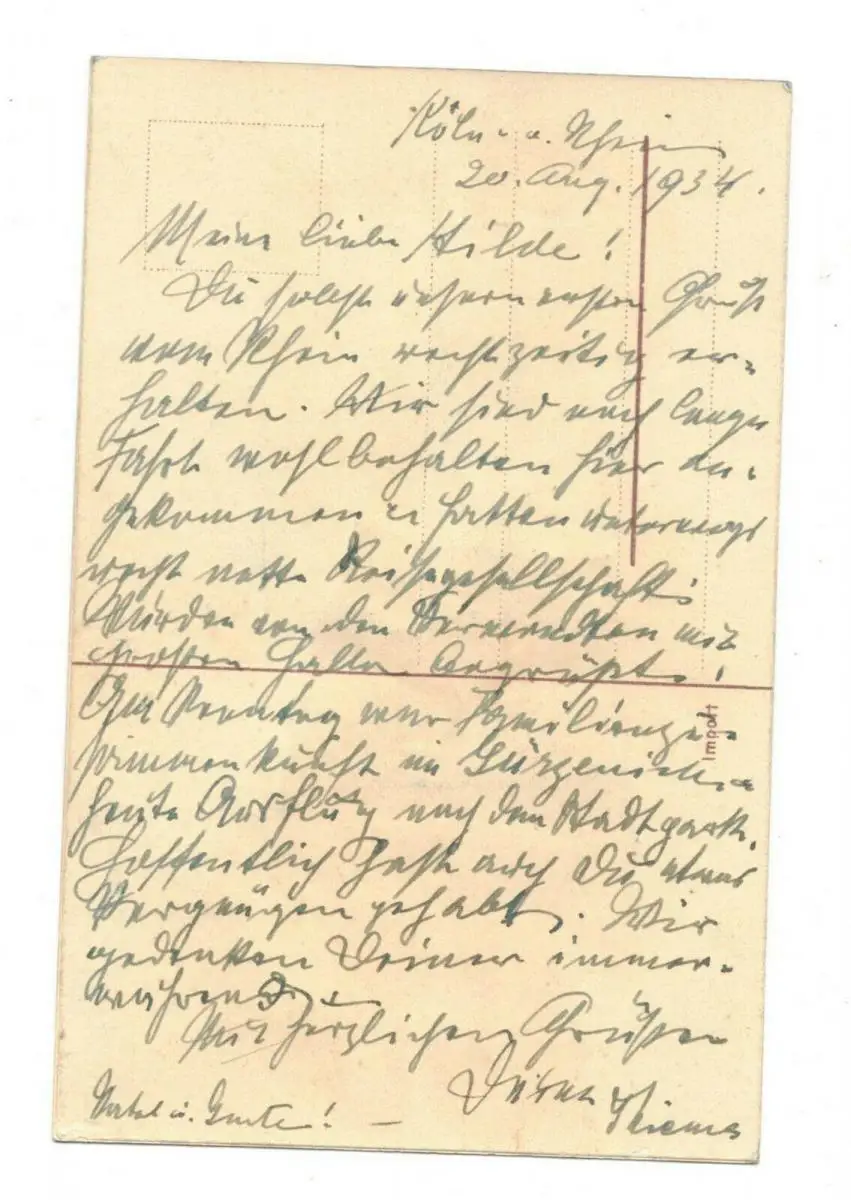 Köln a. Rhein
20. Aug. 1934.
Meine liebe Hilde!
Du sollst unsern ersten Gruß
vom Rhein rechtzeitig er-
halten. Wir sind nach langer
Fahrt wohlbehalten hier an-
gekommen u. hatten unterwegs
recht nette Reisegesellschaft.
Wurden von den Verwandten mit
großem Hallo begrüßt.
Am Sonntag war Familienzu-
sammenkunft im Gürzenich u.
heute Ausflug nach dem Stadtpark.
Hoffentlich hast auch Du etwas
Vergnügen gehabt. Wir
gedenken Deiner immer-
während.
Mit herzlichen Grüßen
Deine
u.
Import